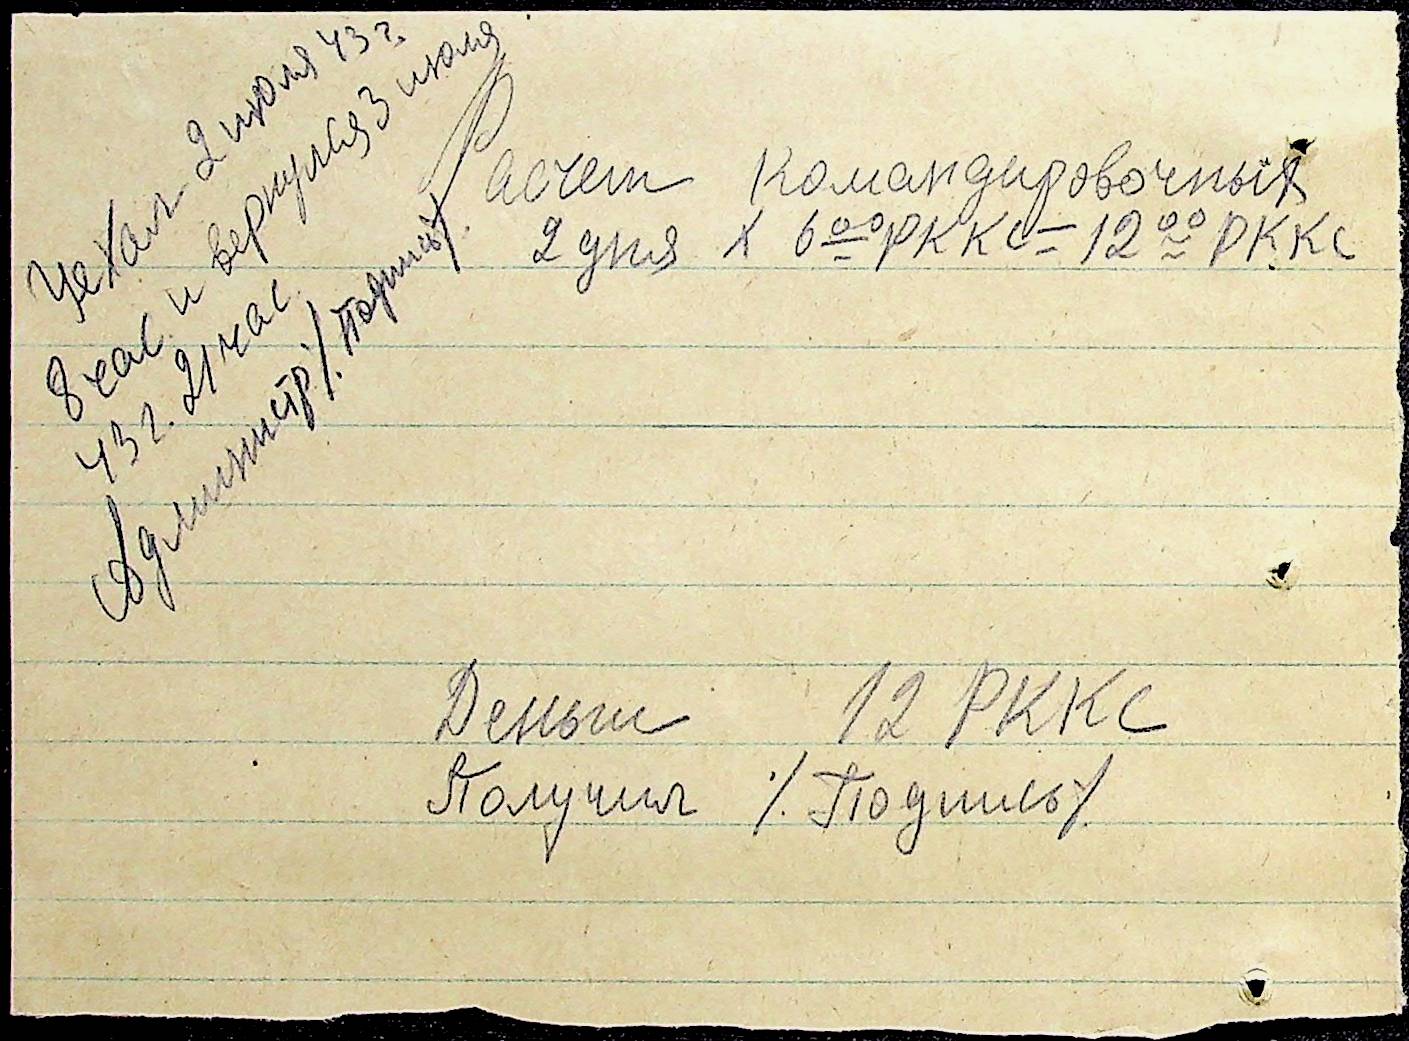 Уехал 2 июля 43 г.
8 час и вернулся 3 июля
43 г. 21 час.
Администр /. Подпись /.
Расчет командировочных
2 дня х 6 00 РККС = 12 00 РККС
Деньги 12 РККС
Получил /. Подпись /.